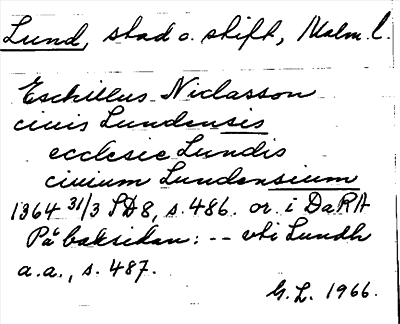 Lund, stad o. stift, Malm. l.
Eschillus Niclasson
ciuis Lundensis
ecclesie Lundis
ciuium Lundensium
1364 31/3 SD8, s. 486. or. i DaRA
På baksidan: -- vti Lundh
a.a., s. 487.
G.L. 1966.